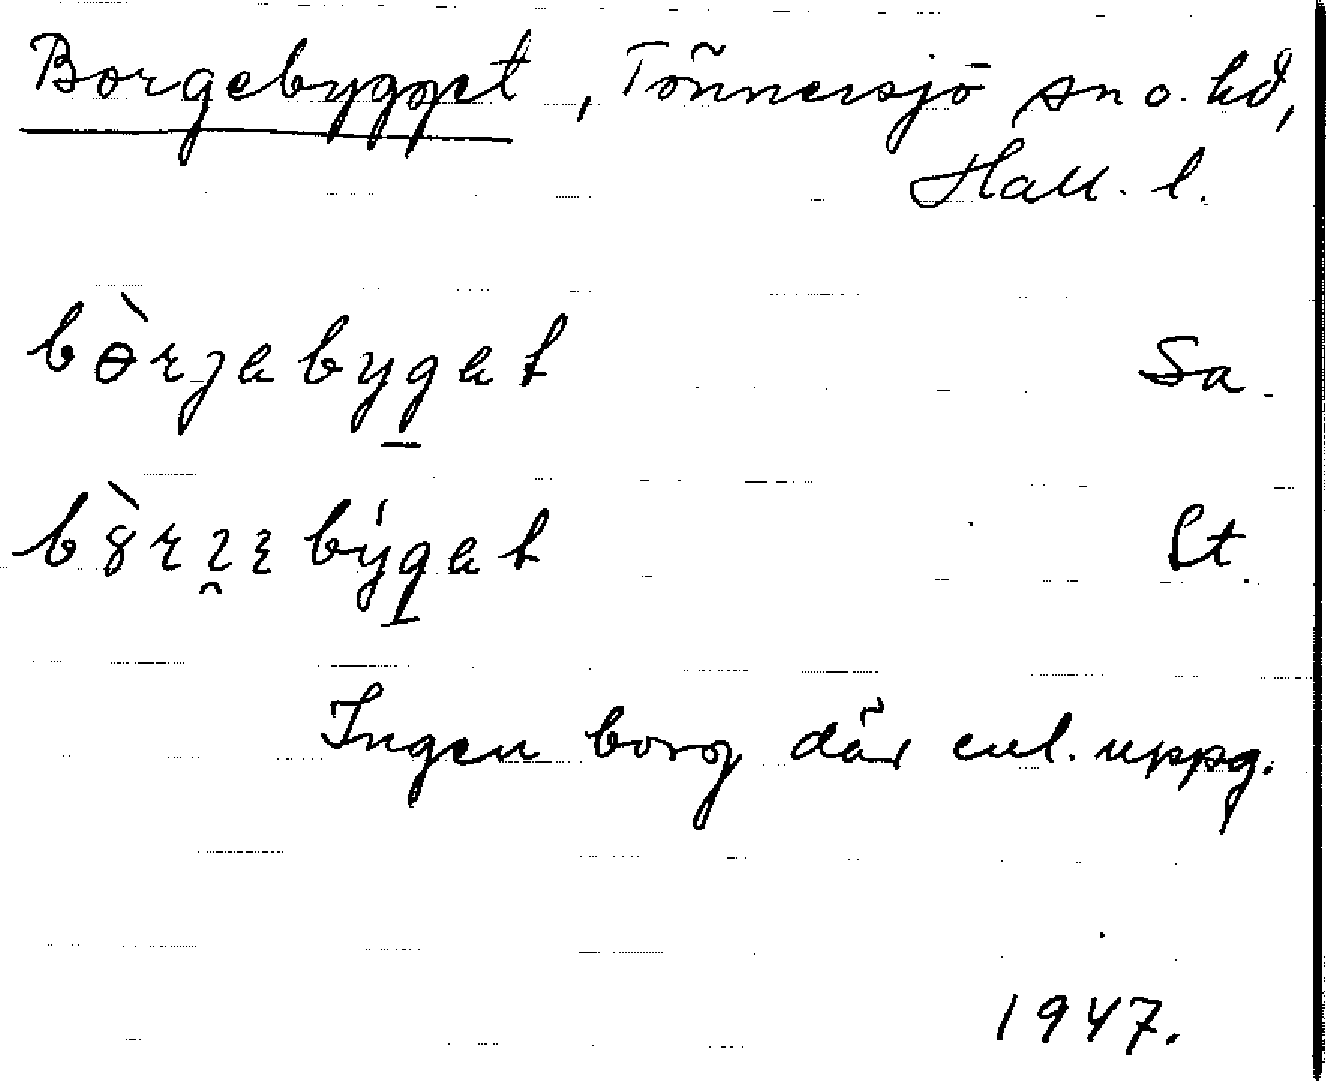 Borgebygget, Tönnersjö sn o. hd,
Hall. l.
bɵ̀rjebyget Sa.
b8̀rɿɛbýget Lt.
Ingen borg där enl. uppg.
1947.